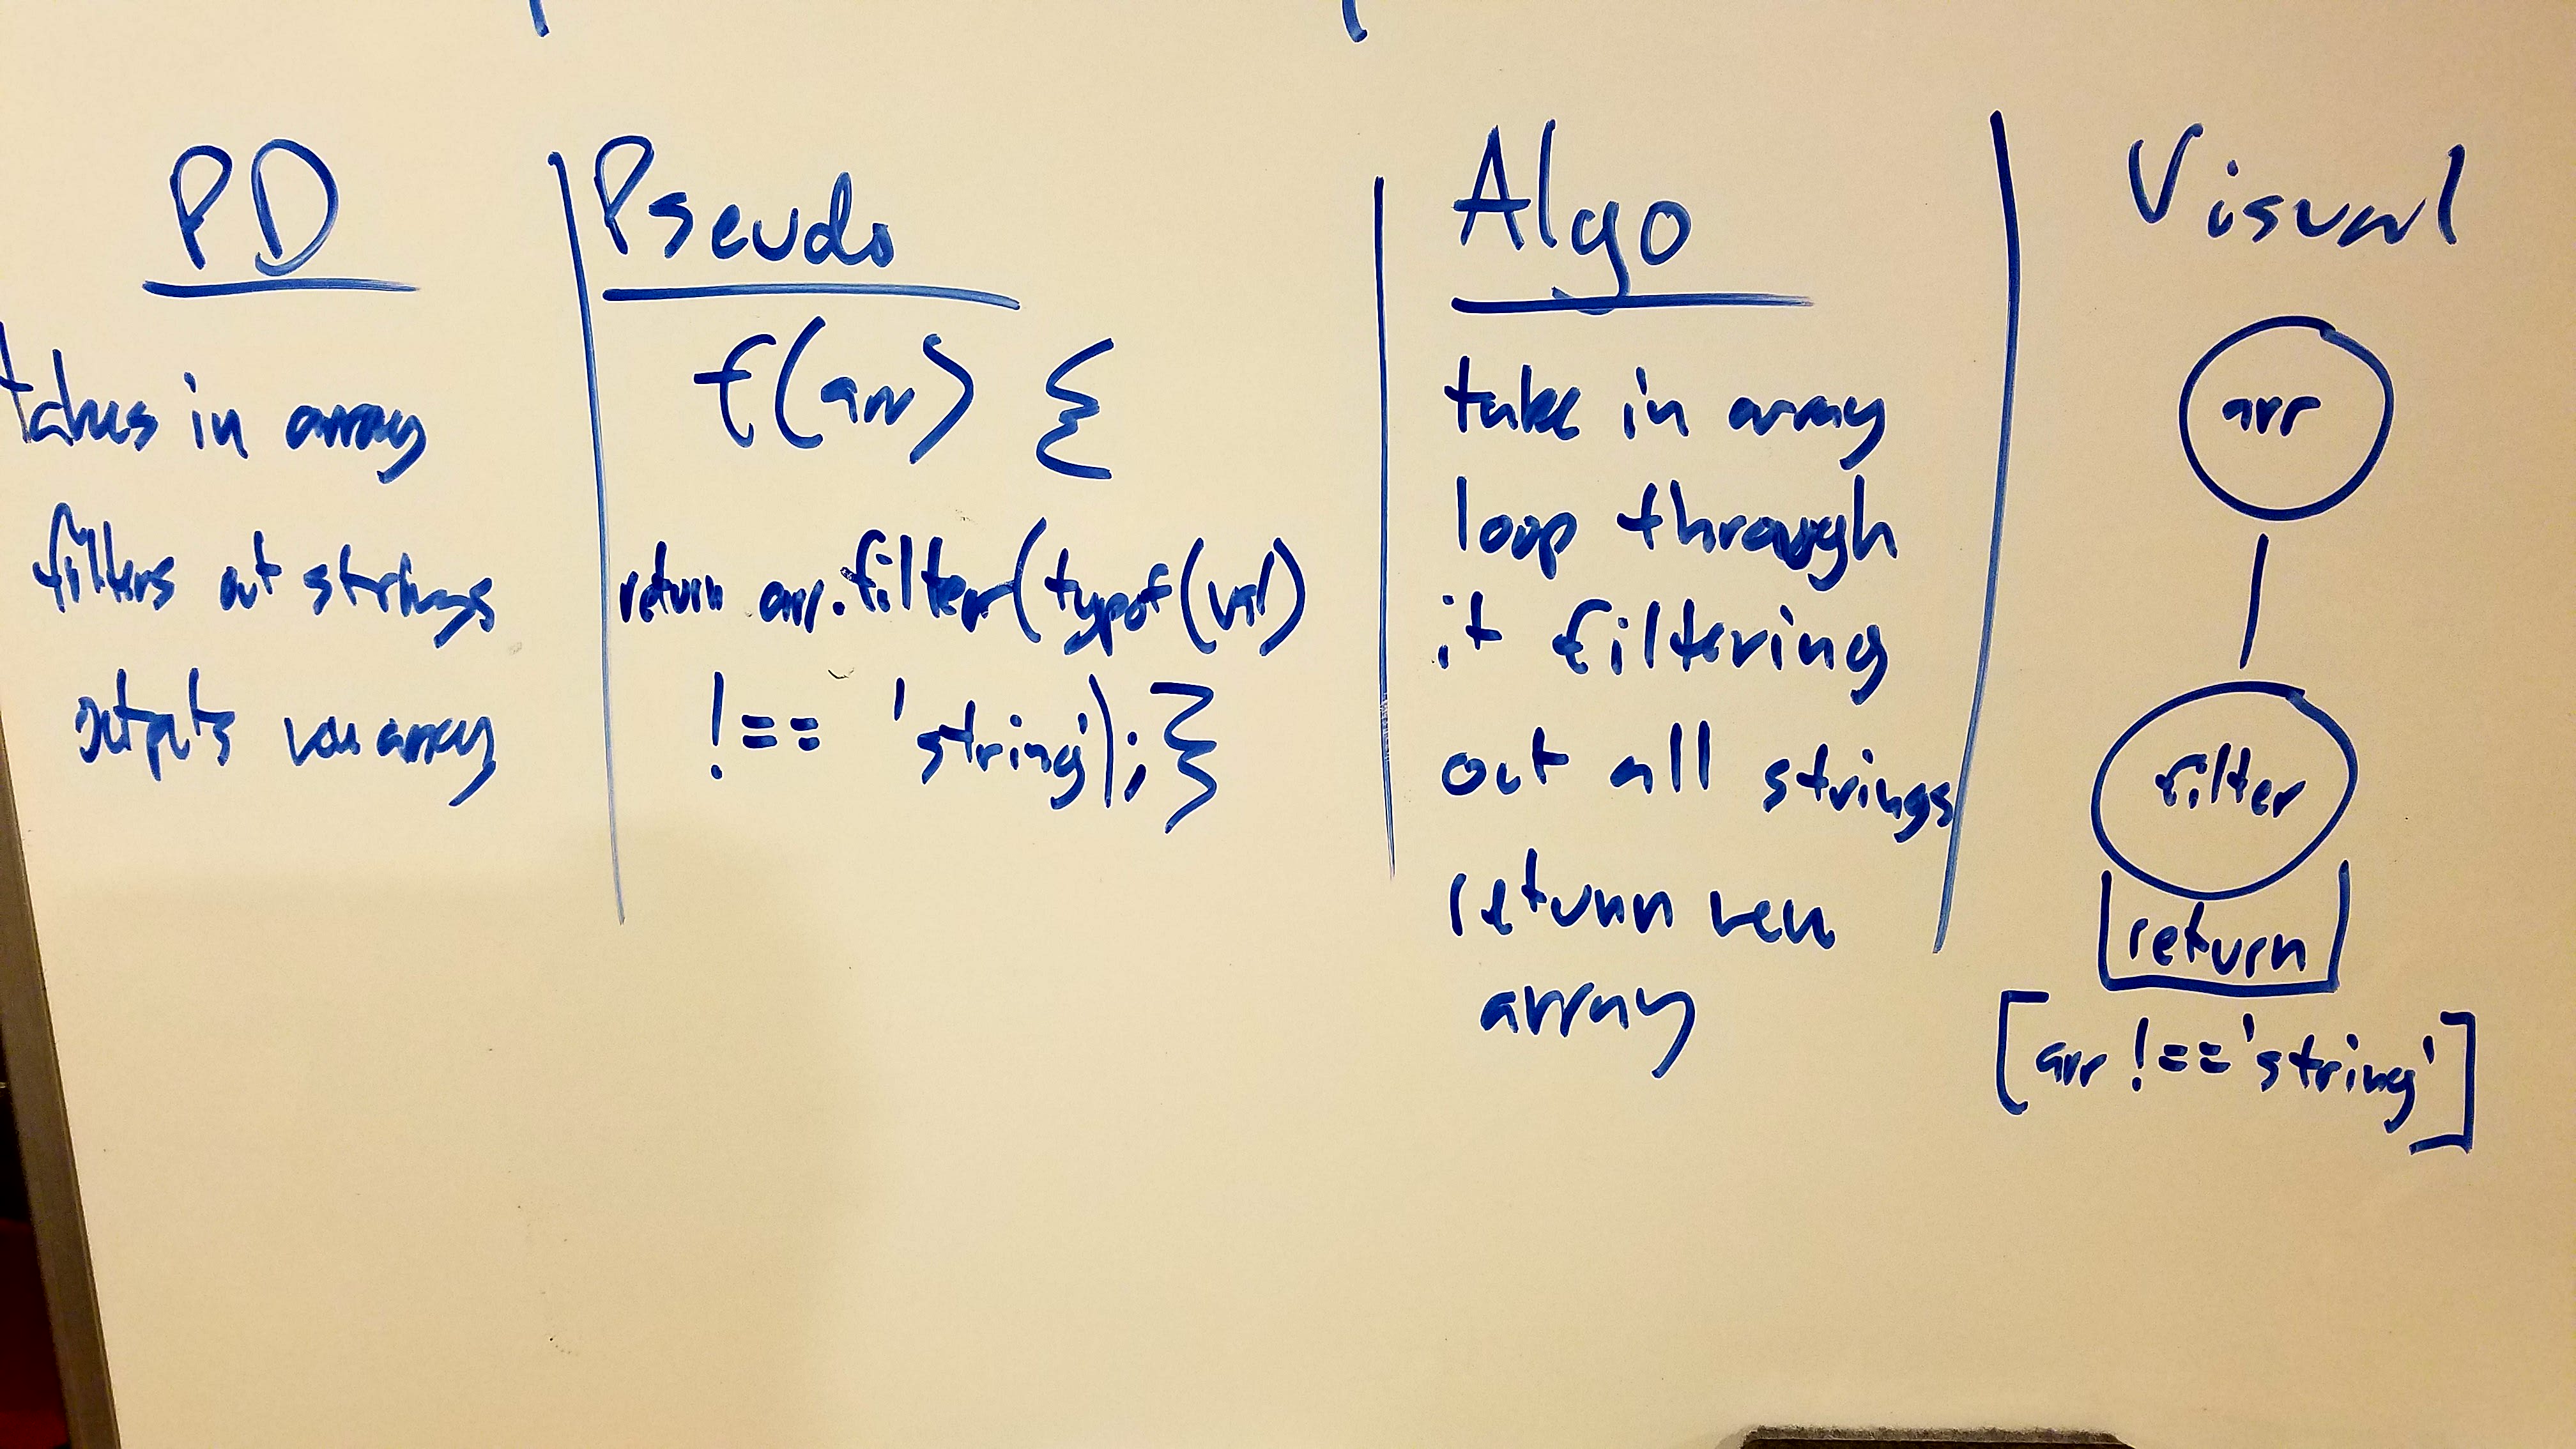 PD
takes in array
filters out strings
outputs new array
Pseudo
f(arr) {
return arr.filter(typof(val)
!== 'string');}
Algo
take in array
loop through
it filtering
out all strings
return new
array
Visual
arr
filter
return
[arr !== 'string']